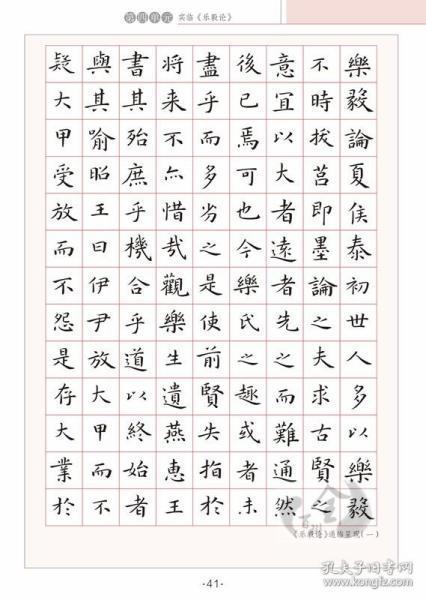 第四单元 实临《乐毅论》
樂毅論夏侯泰初世人多以樂毅
不時拔莒即墨論之夫求古賢之
意宜以大者遠者先之而難通然
後已焉可也今樂氏之趣或者未
盡乎而多劣之是使前賢失指於
将来不亦惜哉觀樂生遺燕惠王
書其殆庶乎機合乎道以終始者
與其喻昭王曰伊尹放大甲而不
疑大甲受放而不怨是存大業於
《乐毅论》通临呈现(一)
·41·
孔夫子旧书网
www.kongfz.com